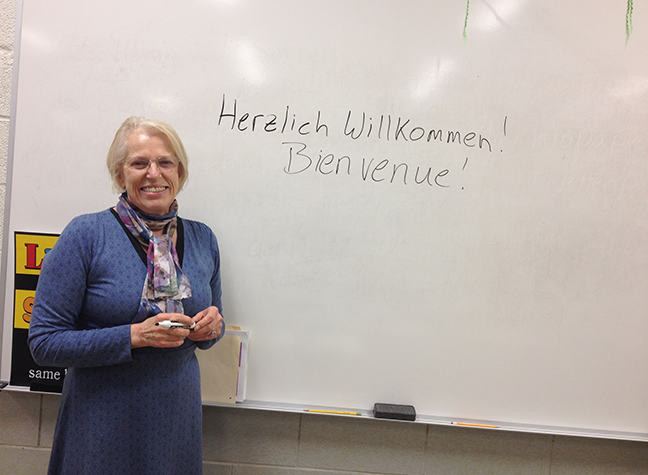 Herzlich Willkommen!
Bienvenue!
same